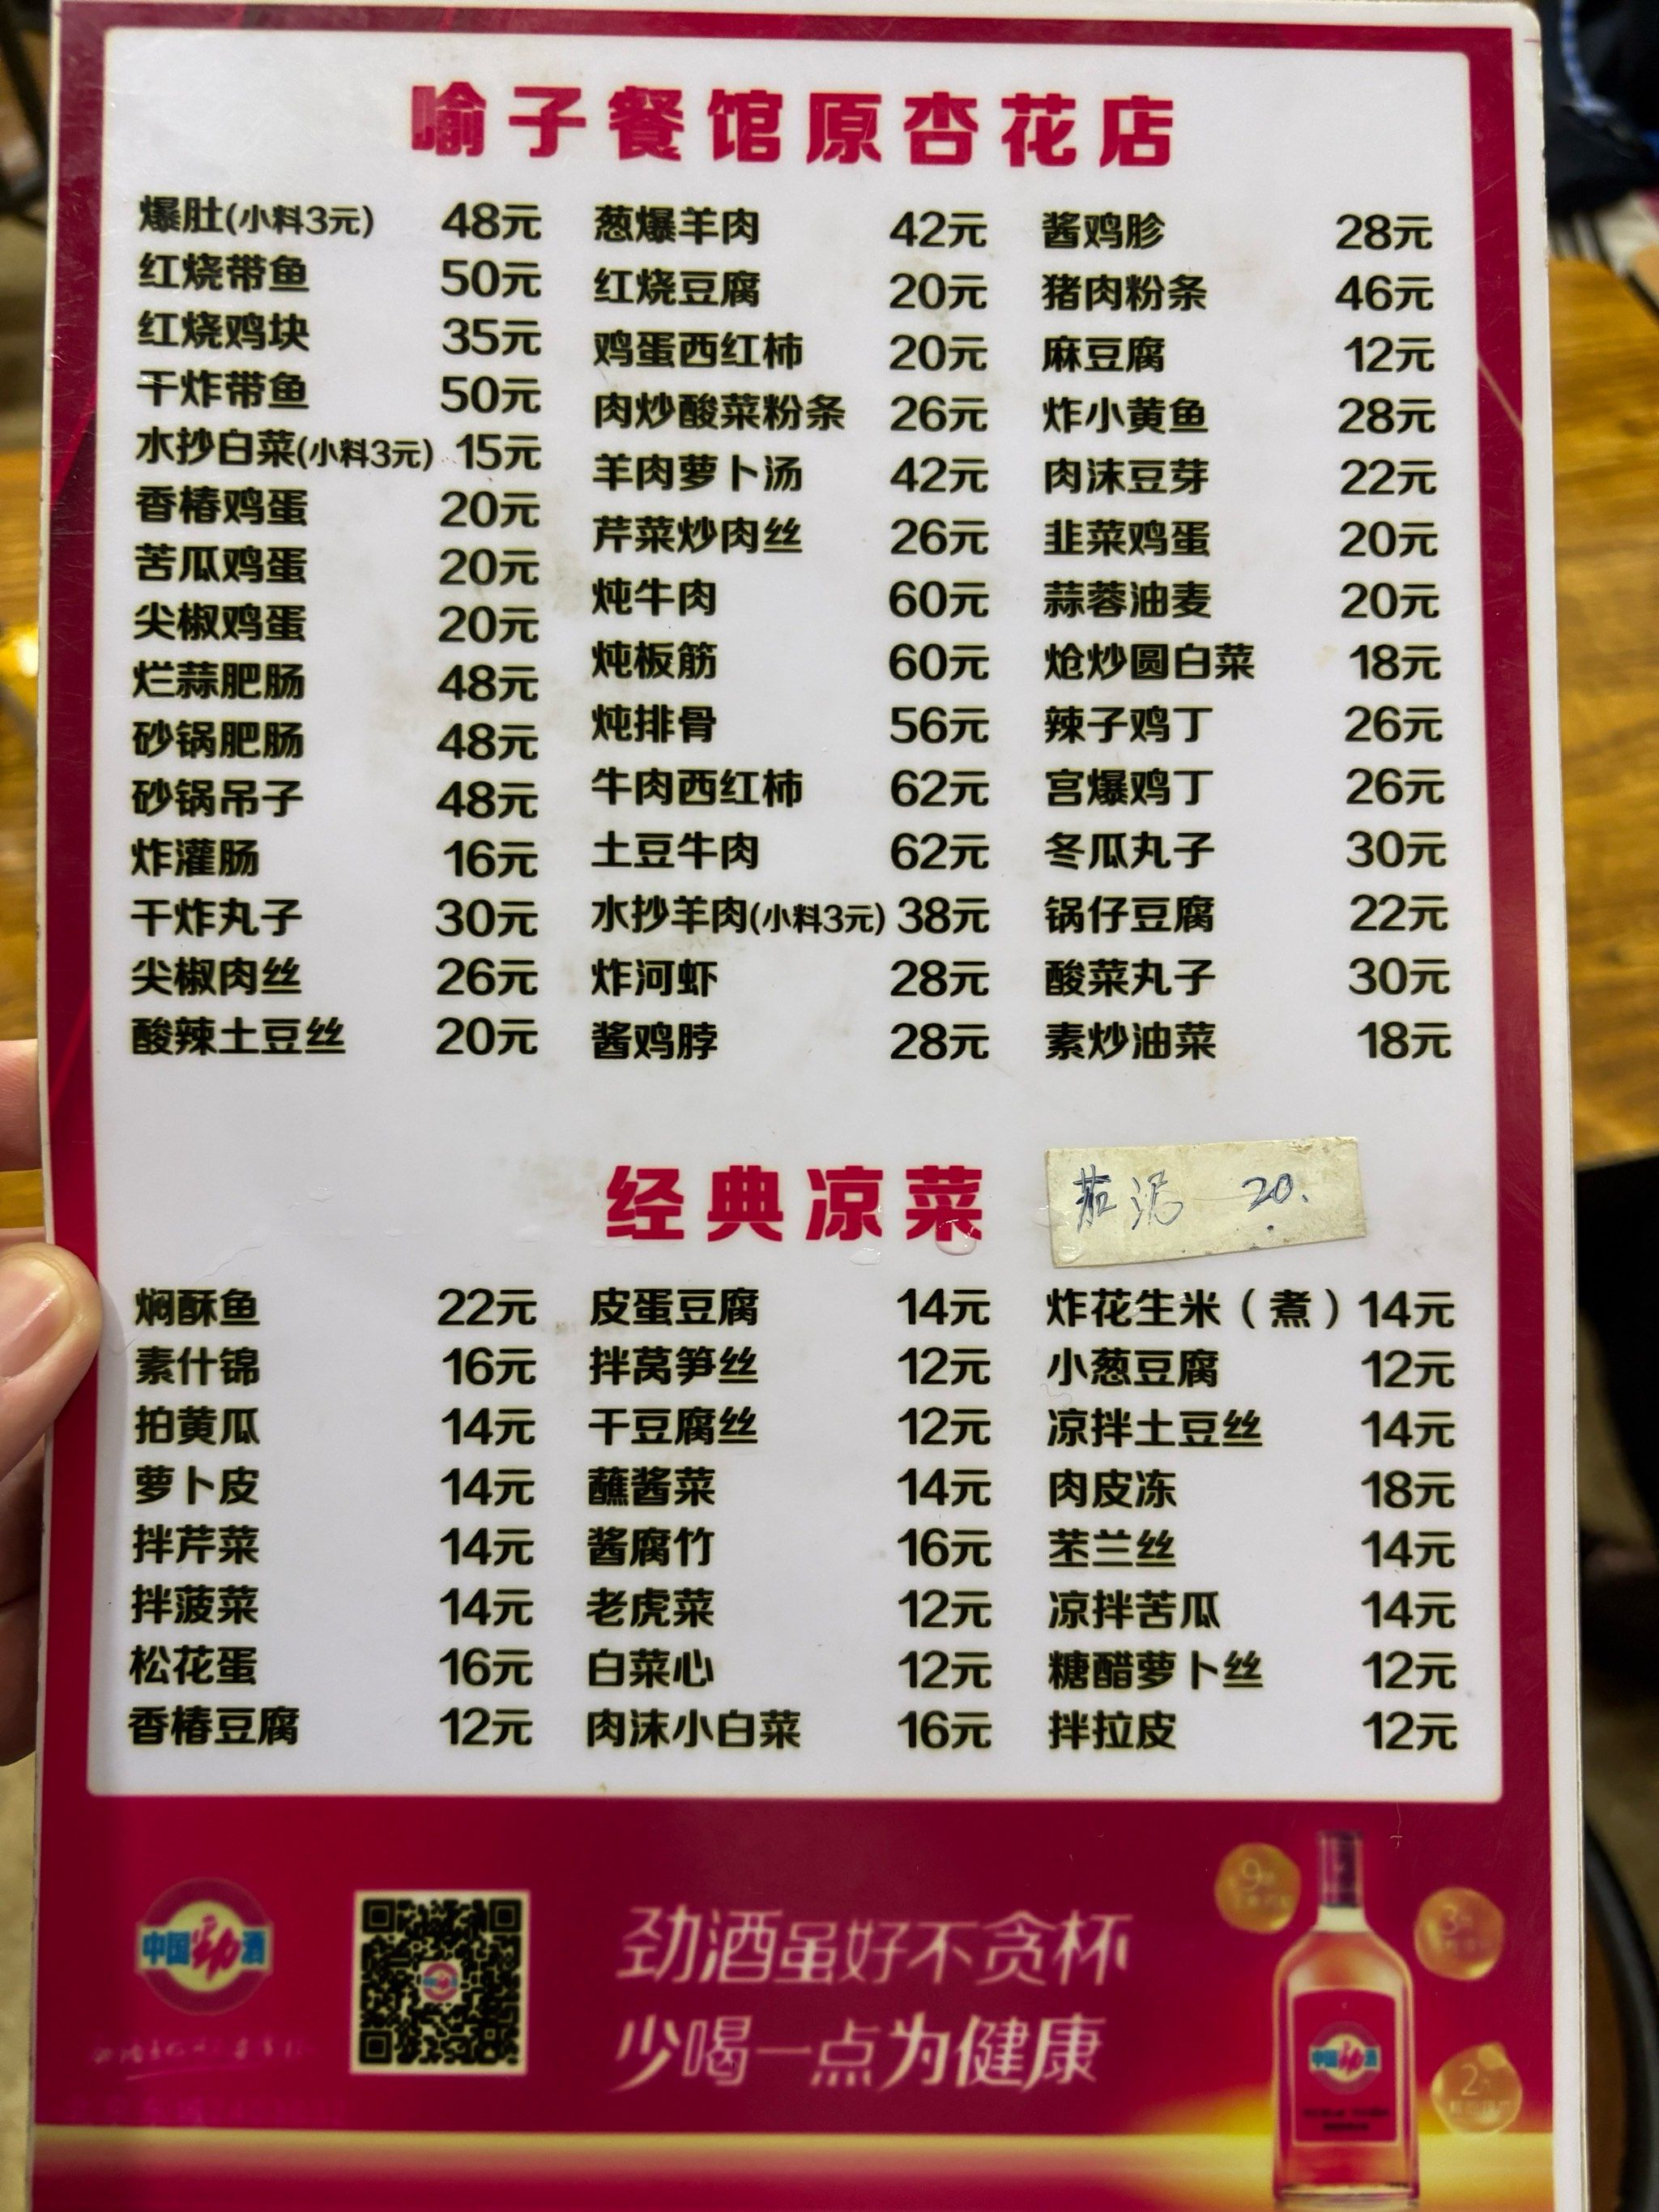 喻子餐馆原杏花店
爆肚(小料3元) 48元
红烧带鱼 50元
红烧鸡块 35元
干炸带鱼 50元
水抄白菜(小料3元) 15元
香椿鸡蛋 20元
苦瓜鸡蛋 20元
尖椒鸡蛋 20元
烂蒜肥肠 48元
砂锅肥肠 48元
砂锅吊子 48元
炸灌肠 16元
干炸丸子 30元
尖椒肉丝 26元
酸辣土豆丝 20元
葱爆羊肉 42元
红烧豆腐 20元
鸡蛋西红柿 20元
肉炒酸菜粉条 26元
羊肉萝卜汤 42元
芹菜炒肉丝 26元
炖牛肉 60元
炖板筋 60元
炖排骨 56元
牛肉西红柿 62元
土豆牛肉 62元
水抄羊肉(小料3元) 38元
炸河虾 28元
酱鸡脖 28元
酱鸡胗 28元
猪肉粉条 46元
麻豆腐 12元
炸小黄鱼 28元
肉沫豆芽 22元
韭菜鸡蛋 20元
蒜蓉油麦 20元
炝炒圆白菜 18元
辣子鸡丁 26元
宫爆鸡丁 26元
冬瓜丸子 30元
锅仔豆腐 22元
酸菜丸子 30元
素炒油菜 18元
经典凉菜
茄泥 20.
焖酥鱼 22元
素什锦 16元
拍黄瓜 14元
萝卜皮 14元
拌芹菜 14元
拌菠菜 14元
松花蛋 16元
香椿豆腐 12元
皮蛋豆腐 14元
拌莴笋丝 12元
干豆腐丝 12元
蘸酱菜 14元
酱腐竹 16元
老虎菜 12元
白菜心 12元
肉沫小白菜 16元
炸花生米（煮） 14元
小葱豆腐 12元
凉拌土豆丝 14元
肉皮冻 18元
苤兰丝 14元
凉拌苦瓜 14元
糖醋萝卜丝 12元
拌拉皮 12元
中国劲酒
劲酒虽好不贪杯
少喝一点为健康
中国劲酒